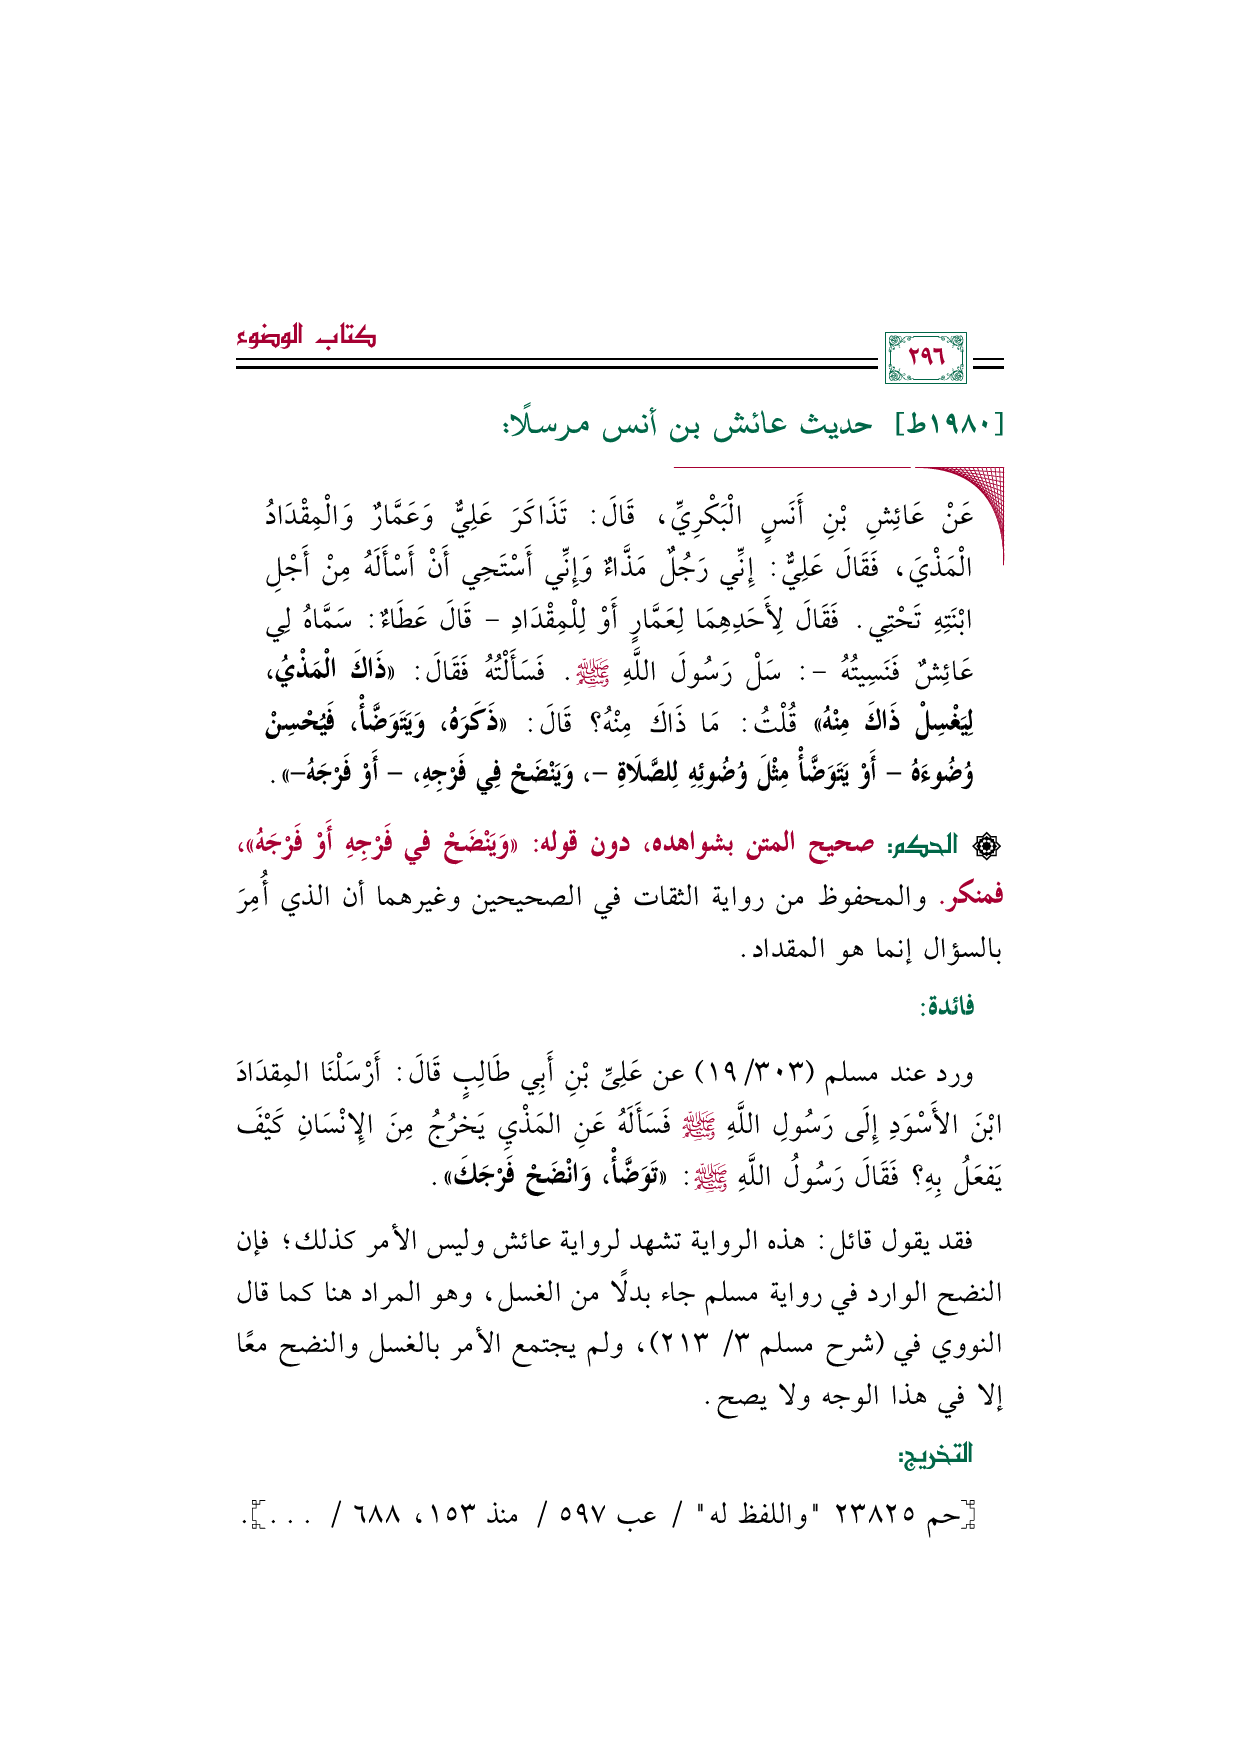 كتاب الوضوء
٢٩٦
[١٩٨٠ط] حديث عائش بن أنس مرسلًا:
عَنْ عَائِشِ بْنِ أَنَسٍ الْبَكْرِيِّ، قَالَ: تَذَاكَرَ عَلِيٌّ وَعَمَّارٌ وَالْمِقْدَادُ
الْمَذْيَ، فَقَالَ عَلِيٌّ: إِنِّي رَجُلٌ مَذَّاءٌ وَإِنِّي أَسْتَحِي أَنْ أَسْأَلَهُ مِنْ أَجْلِ
ابْنَتِهِ تَحْتِي. فَقَالَ لِأَحَدِهِمَا لِعَمَّارٍ أَوْ لِلْمِقْدَادِ - قَالَ عَطَاءٌ: سَمَّاهُ لِي
عَائِشٌ فَنَسِيتُهُ -: سَلْ رَسُولَ اللَّهِ ﷺ. فَسَأَلْتُهُ فَقَالَ: «ذَاكَ الْمَذْيُ،
لِيَغْسِلْ ذَاكَ مِنْهُ» قُلْتُ: مَا ذَاكَ مِنْهُ؟ قَالَ: «ذَكَرَهُ، وَيَتَوَضَّأْ، فَيُحْسِنْ
وُضُوءَهُ - أَوْ يَتَوَضَّأْ مِثْلَ وُضُوئِهِ لِلصَّلَاةِ -، وَيَنْضَحْ فِي فَرْجِهِ، - أَوْ فَرْجَهُ-».
الحكم: صحيح المتن بشواهده، دون قوله: «وَيَنْضَحْ في فَرْجِهِ أَوْ فَرْجَهُ»،
فمنكر. والمحفوظ من رواية الثقات في الصحيحين وغيرهما أن الذي أُمِرَ
بالسؤال إنما هو المقداد.
فائدة:
ورد عند مسلم (٣٠٣/ ١٩) عن عَلِيِّ بْنِ أَبِي طَالِبٍ قَالَ: أَرْسَلْنَا المِقدَادَ
ابْنَ الأَسْوَدِ إِلَى رَسُولِ اللَّهِ ﷺ فَسَأَلَهُ عَنِ المَذْيِ يَخرُجُ مِنَ الإِنْسَانِ كَيْفَ
يَفعَلُ بِهِ؟ فَقَالَ رَسُولُ اللَّهِ ﷺ: «تَوَضَّأْ، وَانْضَحْ فَرْجَكَ».
فقد يقول قائل: هذه الرواية تشهد لرواية عائش وليس الأمر كذلك؛ فإن
النضح الوارد في رواية مسلم جاء بدلًا من الغسل، وهو المراد هنا كما قال
النووي في (شرح مسلم ٣/ ٢١٣)، ولم يجتمع الأمر بالغسل والنضح معًا
إلا في هذا الوجه ولا يصح.
التخريج:
[حم ٢٣٨٢٥ "واللفظ له" / عب ٥٩٧ / منذ ١٥٣، ٦٨٨ / ...].